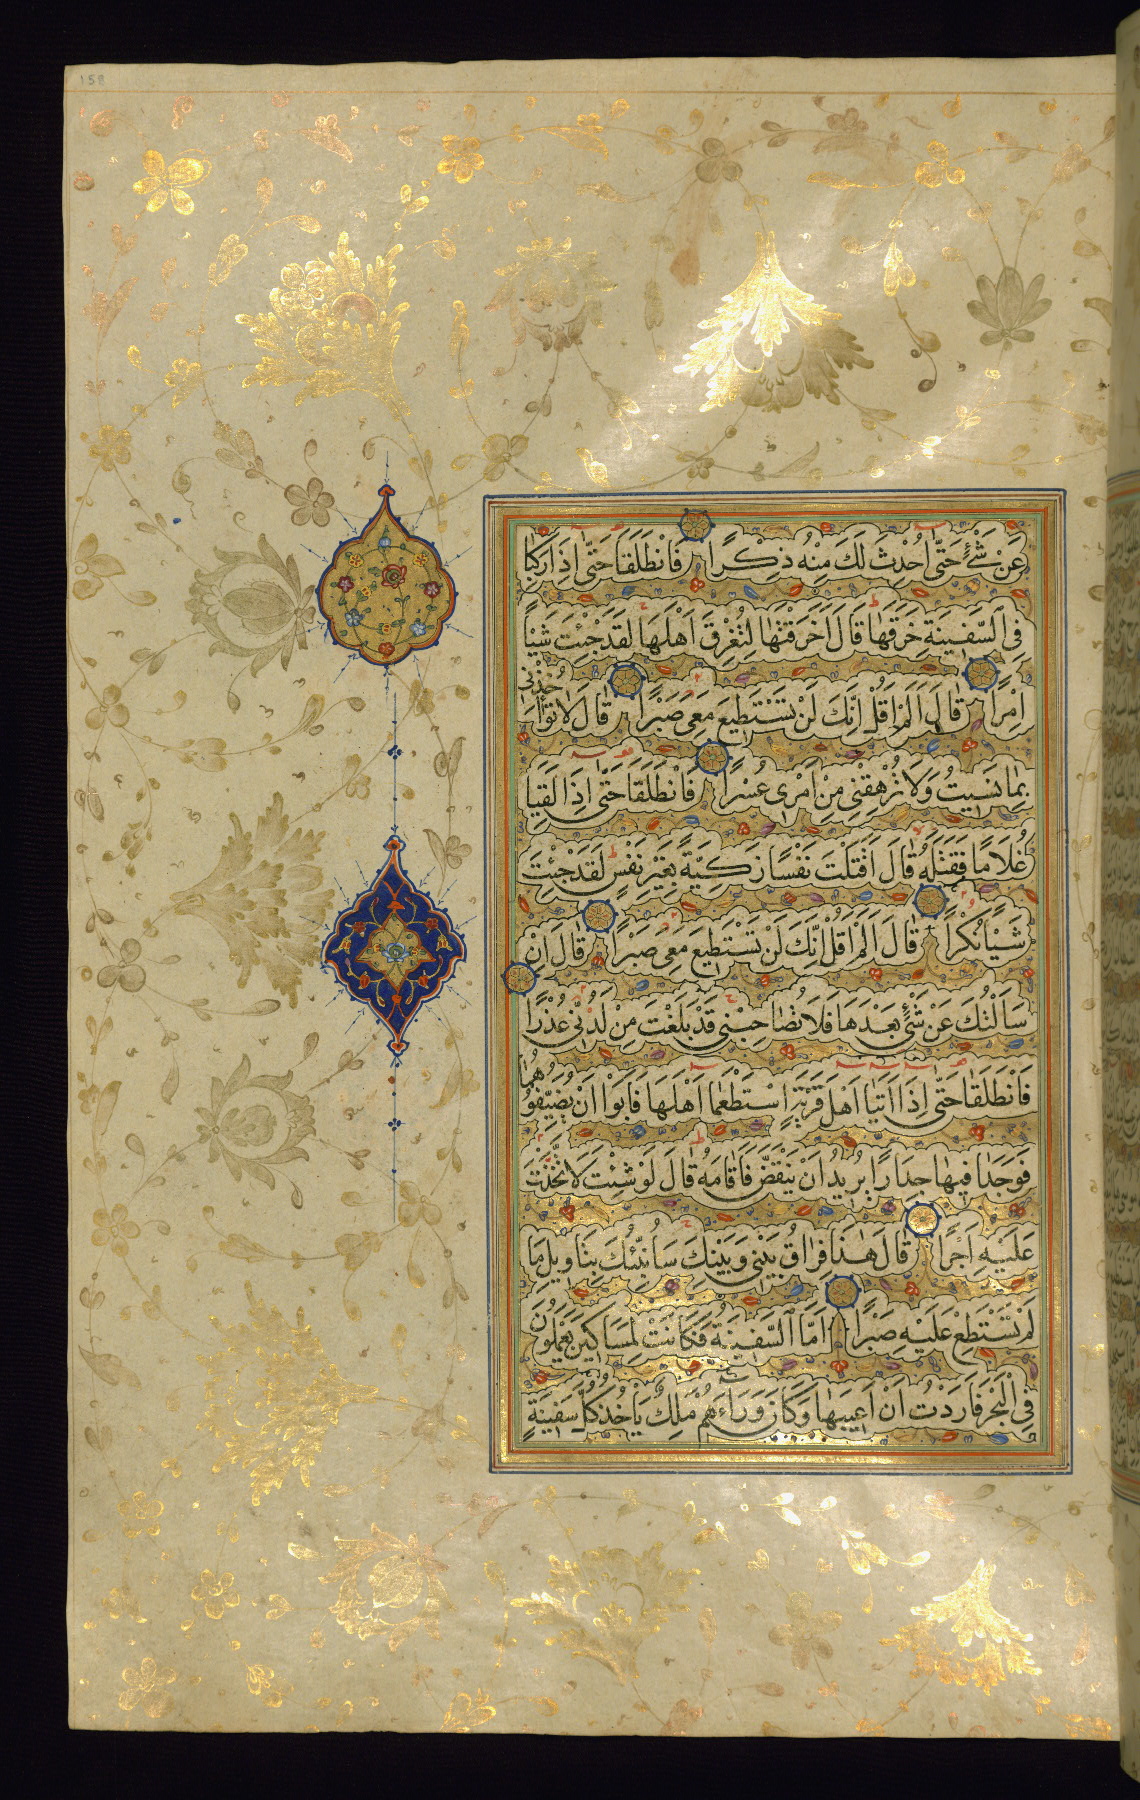 158
عَنْ شَیْءٍ حَتّٰى اُحْدِثَ لَكَ مِنْهُ ذِكْرًا فَانْطَلَقَا حَتّٰى اِذَا رَكِبَا
فِی السَّفِینَةِ خَرَقَهَا قَالَ اَخَرَقْتَهَا لِتُغْرِقَ اَهْلَهَا لَقَدْ جِئْتَ شَیْئًا
اِمْرًا قَالَ اَلَمْ اَقُلْ اِنَّكَ لَنْ تَسْتَطِیعَ مَعِیَ صَبْرًا قَالَ لَا تُؤَاخِذْنِی
بِمَا نَسِیتُ وَلَا تُرْهِقْنِی مِنْ اَمْرِی عُسْرًا فَانْطَلَقَا حَتّٰى اِذَا لَقِیَا
غُلَامًا فَقَتَلَهُ قَالَ اَقَتَلْتَ نَفْسًا زَكِیَّةً بِغَیْرِ نَفْسٍ لَقَدْ جِئْتَ
شَیْئًا نُكْرًا قَالَ اَلَمْ اَقُلْ لَكَ اِنَّكَ لَنْ تَسْتَطِیعَ مَعِیَ صَبْرًا قَالَ اِنْ
سَاَلْتُكَ عَنْ شَیْءٍ بَعْدَهَا فَلَا تُصَاحِبْنِی قَدْ بَلَغْتَ مِنْ لَدُنِّی عُذْرًا
فَانْطَلَقَا حَتّٰى اِذَا اَتَیَا اَهْلَ قَرْیَةٍ اسْتَطْعَمَا اَهْلَهَا فَاَبَوْا اَنْ یُضَیِّفُوهُمَا
فَوَجَدَا فِیهَا جِدَارًا یُرِیدُ اَنْ یَنْقَضَّ فَاَقَامَهُ قَالَ لَوْ شِئْتَ لَاتَّخَذْتَ
عَلَیْهِ اَجْرًا قَالَ هٰذَا فِرَاقُ بَیْنِی وَبَیْنِكَ سَاُنَبِّئُكَ بِتَاْوِیلِ مَا
لَمْ تَسْتَطِعْ عَلَیْهِ صَبْرًا اَمَّا السَّفِینَةُ فَكَانَتْ لِمَسَاكِینَ یَعْمَلُونَ
فِی الْبَحْرِ فَاَرَدْتُ اَنْ اَعِیبَهَا وَكَانَ وَرَاءَهُمْ مَلِكٌ یَاْخُذُ كُلَّ سَفِینَةٍ